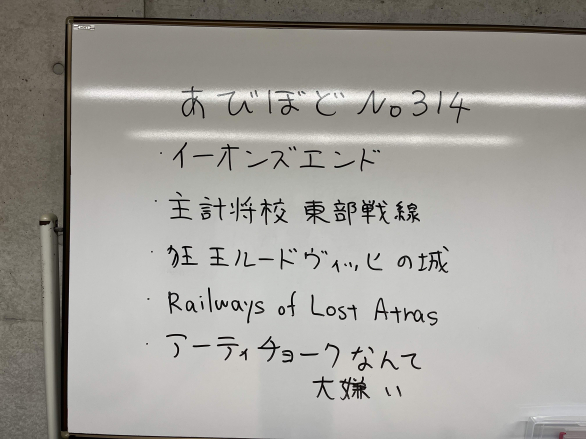 あびぼど No314
・イーオンズエンド
・主計将校 東部戦線
・狂王ルードヴィッヒの城
・Railways of Lost Atras
・アーティチョークなんて
大嫌い